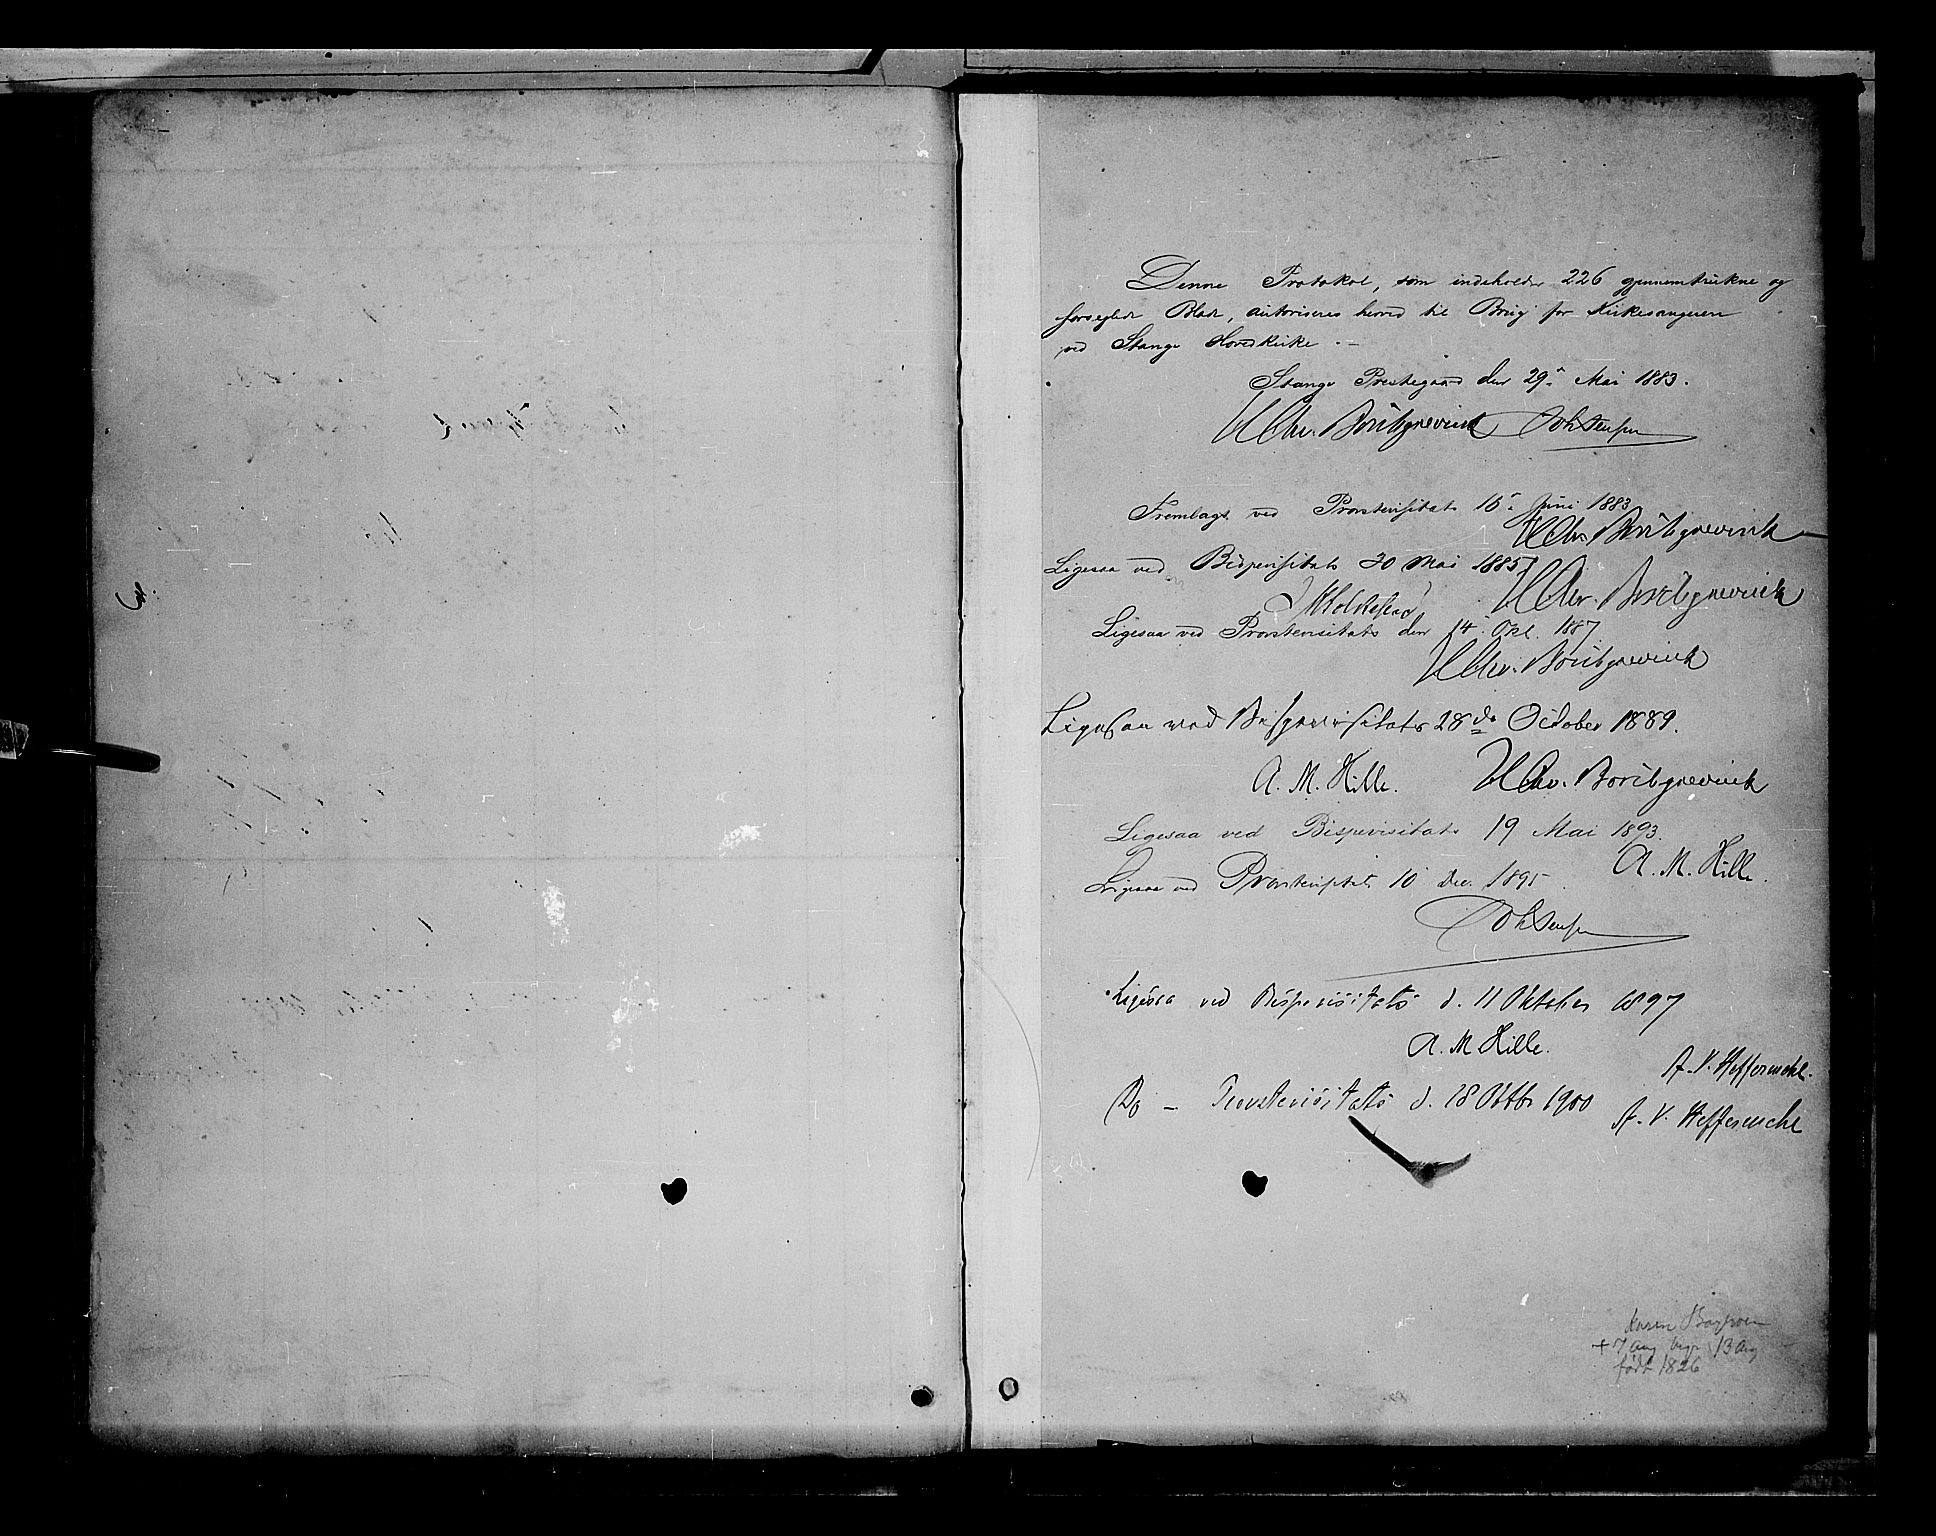 Denne Protokol, som indeholder 226 gjennemtrukne og
forseglede Blade, autoriseres herved til Brug for Kirkesangeren
ved Stange Hovedkirke . —
Stange Prestegaard den 29. Mai 1883.
H Chr. Borchgrevink Joh Jensen
Fremlagt ved Provstevisitats 15. Juni 1883
H Chr. Borchgrevink
Ligesaa ved Bispevisitats 30 Mai 1885
H Chr. Borchgrevink
Ligesaa ved Provstevisitats den 14. Okt. 1887
H Chr. Borchgrevink
Ligesaa ved Bispevisitats 28de October 1889.
A. M. Hille. H Chr. Borchgrevink
Ligesaa ved Bispevisitats 19 Mai 1893.
A. M. Hille.
Ligesaa ved Provstevisitats 10 Dec. 1895.
Joh Jensen
Ligesaa ved Bispevisitats d. 11 Oktober 1897
A. M Hille.
A. V. Heffermehl.
Do — Provstevisitats d. 18 Oktbr 1900
A. V. Heffermehl
Karen
+ 7 Aug begr 13 Aug
født 1826